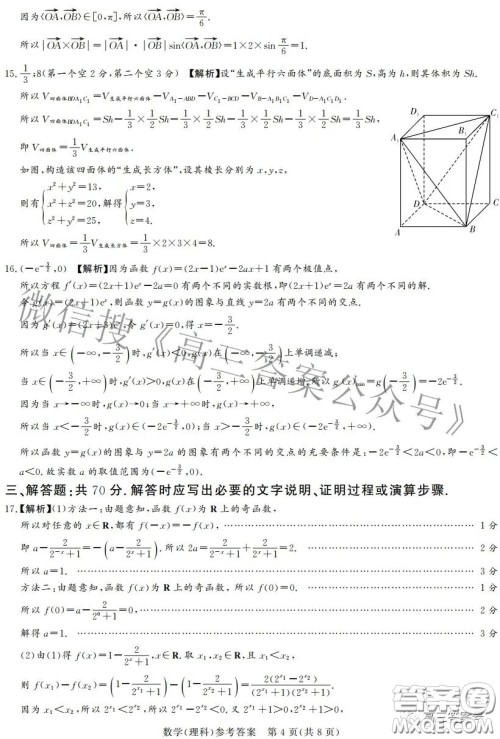 因为⟨OA,OB⟩∈[0,π],所以⟨OA,OB⟩=π/6.
所以|OA×OB|=|OA|·|OB|sin⟨OA,OB⟩=1×2×sin π/6=1.
15. 1/3;8(第一个空2分,第二个空3分) 【解析】设“生成平行六面体”的底面积为S,高为h,则其体积为Sh.
所以V四面体BDA₁C₁=V生成平行六面体-V_{A₁-ABD}-V_{C₁-BCD}-V_{B-A₁B₁C₁}-V_{D-A₁C₁D₁}.
所以V四面体BDA₁C₁=Sh-1/3×1/2Sh-1/3×1/2Sh-1/3×1/2Sh-1/3×1/2Sh=1/3Sh,
即V四面体=1/3V生成平行六面体.
如图,构造该四面体的“生成长方体”,设其棱长分别为x,y,z,
则有{x²+y²=13, x²+z²=20, y²+z²=25, 解得{x=2, y=3, z=4.
所以V四面体=1/3V生成长方体=1/3×2×3×4=8.
D₁ C₁ A₁ B₁ D C A B
16. (-e^{-3/2},0) 【解析】因为函数f(x)=(2x-1)eˣ-2ax+1有两个极值点,
所以方程f′(x)=(2x+1)eˣ-2a=0有两个不同的实数根,即(2x+1)eˣ=2a有两个不同的解.
令g(x)=(2x+1)eˣ,则函数y=g(x)的图象与直线y=2a有两个不同的交点.
因为g′(x)=(2x+3)eˣ,令g′(x)=0,得x=-3/2.
所以当x∈(-∞,-3/2)时,g′(x)<0,g(x)在(-∞,-3/2)上单调递减;
当x∈(-3/2,+∞)时,g′(x)>0,g(x)在(-3/2,+∞)上单调递增,所以g(x)min=g(-3/2)=-2e^{-3/2}.
因为当x→-∞时,g(x)→0;当x→+∞时,g(x)→+∞,
所以当x<-3/2时,g(x)∈(-2e^{-3/2},0);当x>-3/2时,g(x)∈(-2e^{-3/2},+∞).
所以函数y=g(x)的图象与y=2a的图象有两个不同的交点的充要条件是:-2e^{-3/2}<2a<0,即-e^{-3/2}<
a<0.故实数a的取值范围为(-e^{-3/2},0).
三、解答题:共70分.解答时应写出必要的文字说明、证明过程或演算步骤.
17.【解析】(1)方法一:由题意知,函数f(x)为R上的奇函数,
所以对任意的x∈R,都有f(-x)=-f(x), 1分
即a-2/(2⁻ˣ+1)=-(a-2/(2ˣ+1)).所以2a=2·2ˣ/(2ˣ+1)+2/(2ˣ+1)=2. 2分
所以a=1. 3分
方法二:由题意知,函数f(x)为R上的奇函数, 1分
所以f(0)=a-2/(2⁰+1)=0, 2分
解得a=1. 3分
(2)由(1)得f(x)=1-2/(2ˣ+1),x∈R.取x₁,x₂∈R,且x₁<x₂,
则f(x₁)-f(x₂)=(1-2/(2^{x₁}+1))-(1-2/(2^{x₂}+1))=2(2^{x₁}-2^{x₂})/((2^{x₁}+1)(2^{x₂}+1)).
因为x₁<x₂,所以2^{x₁}<2^{x₂},所以2^{x₁}-2^{x₂}<0.又2^{x₁}+1>0,2^{x₂}+1>0,
数学(理科)参考答案 第4页(共8页)
微信搜《高三答案公众号》